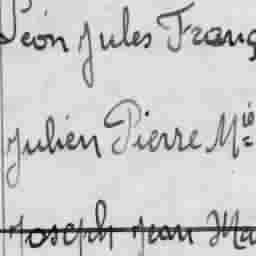 Léon Jules Franç
Julien Pierre Mie
Joseph Jean Ma